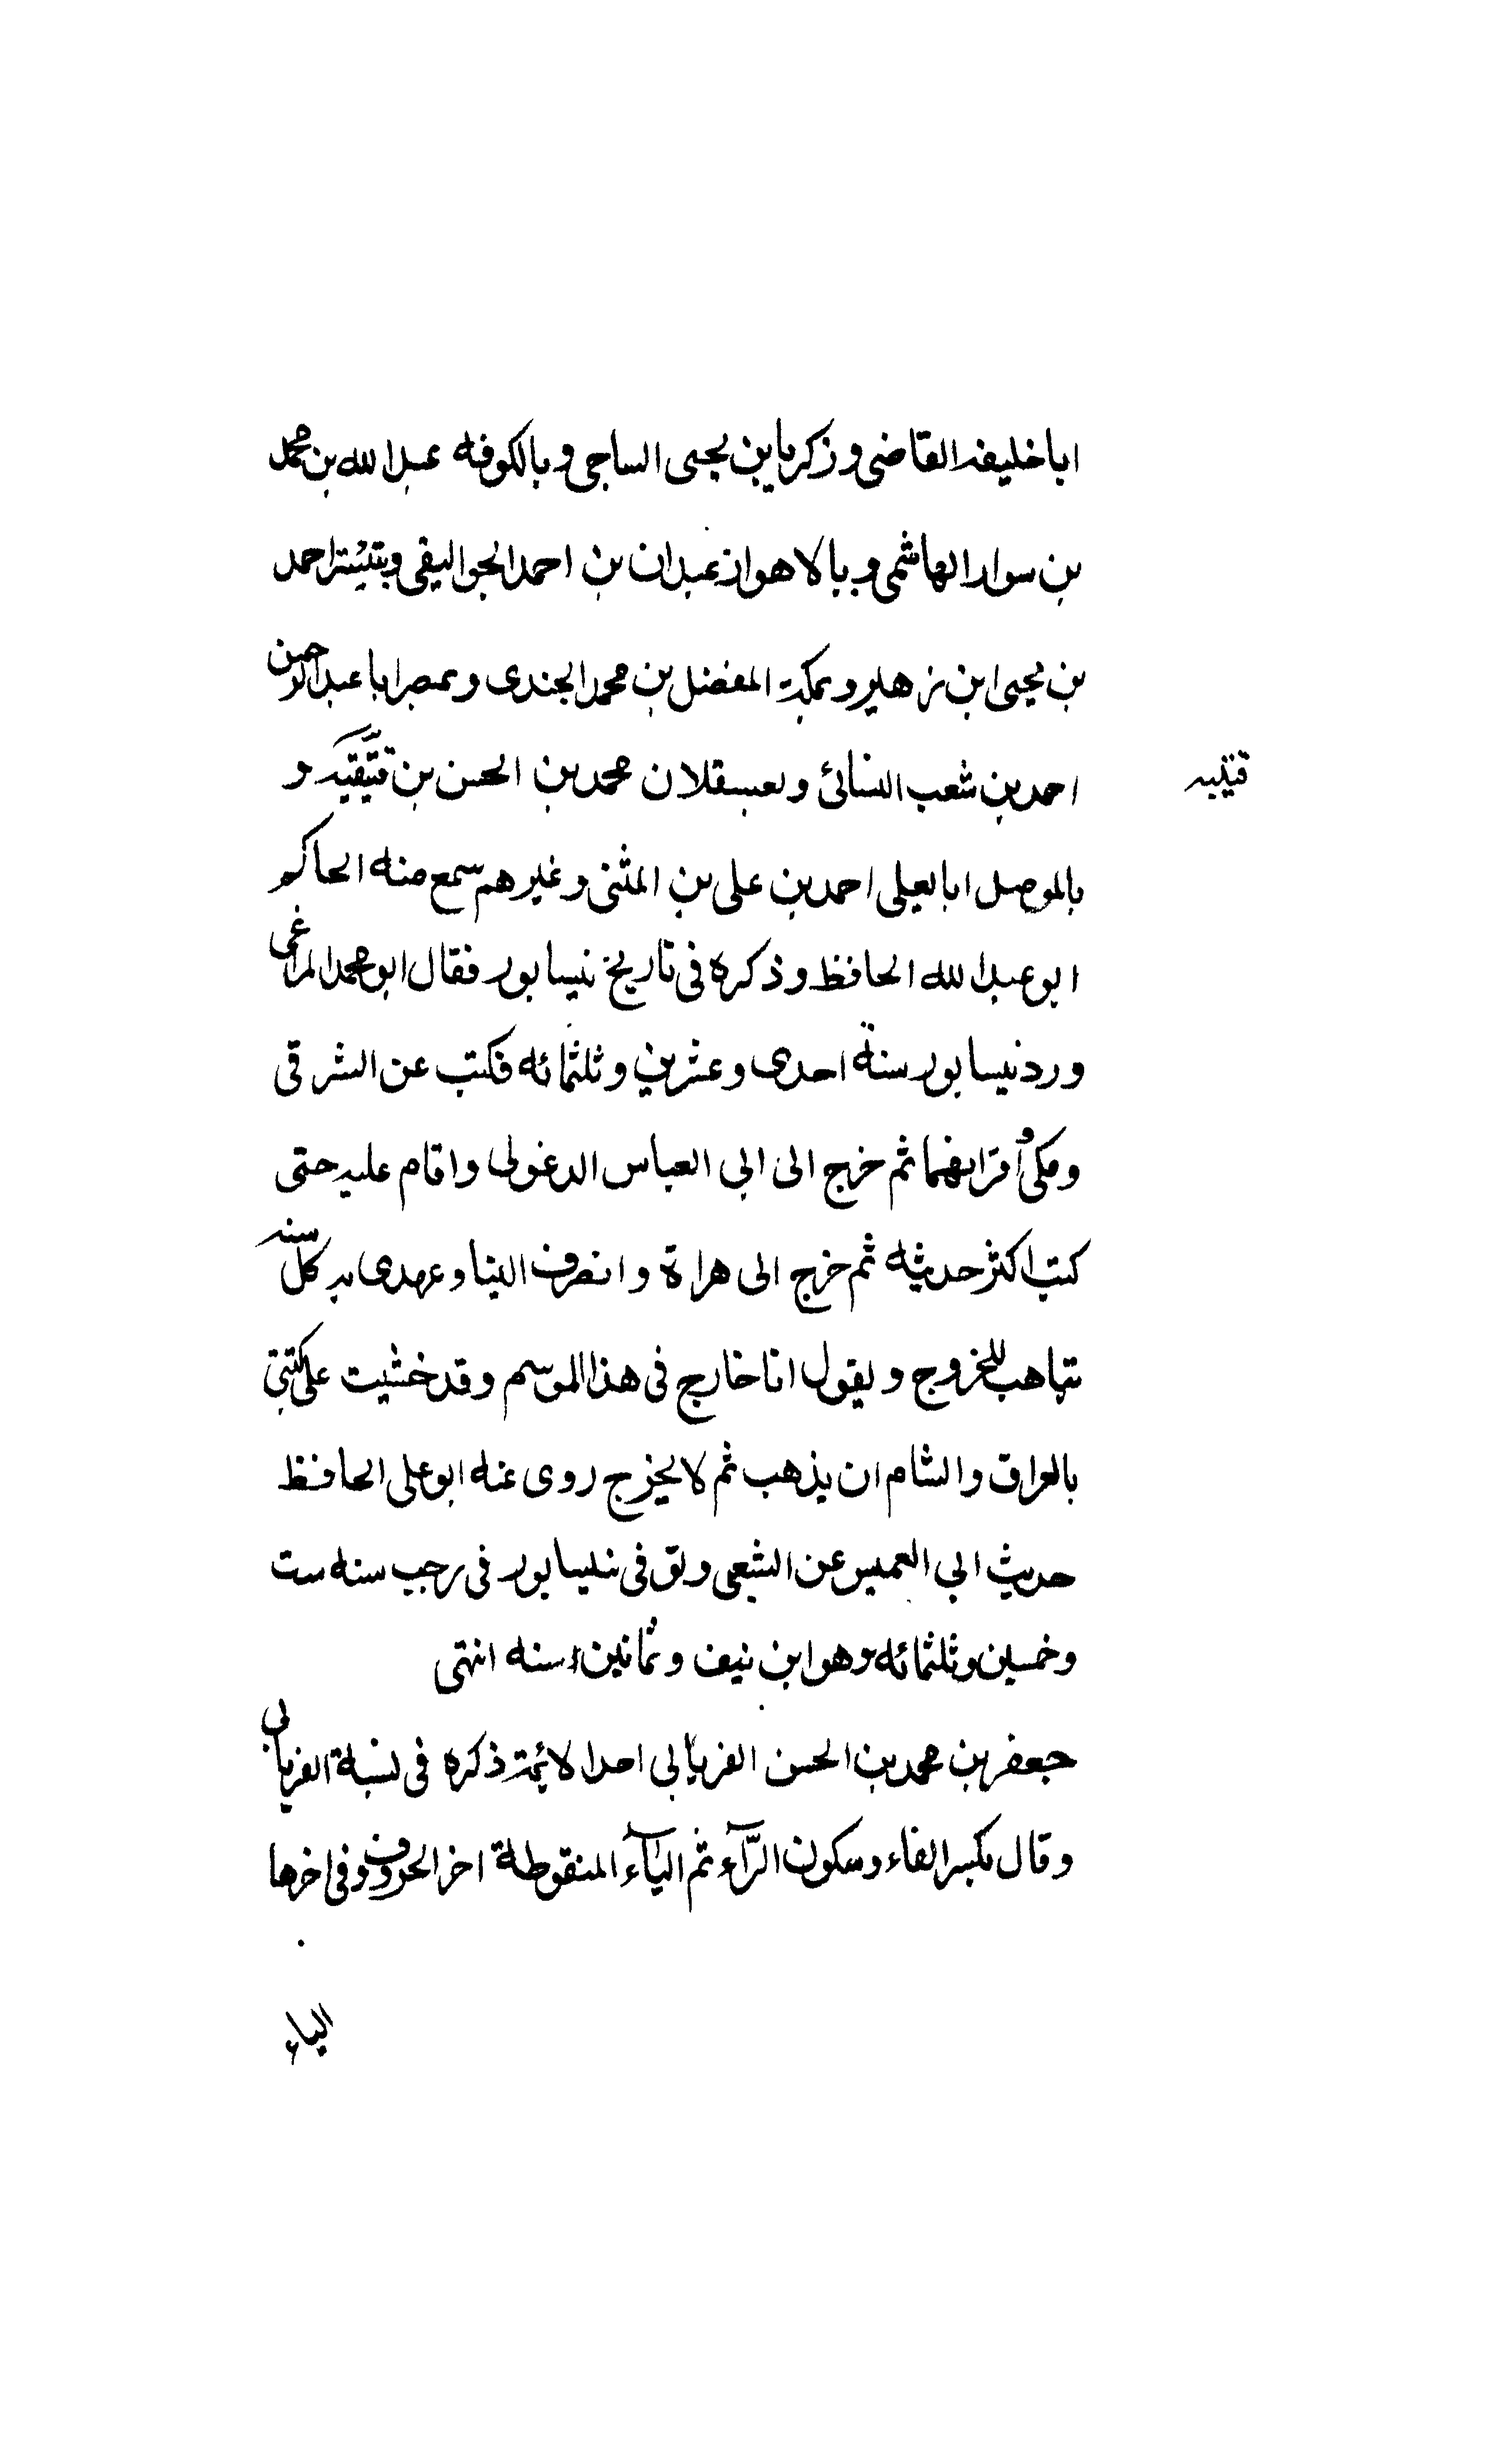 ابا خليفه القاضى و زكريا بن يحيى الساجى و بالكوفه عبد الله بن محمد
بن سوار الهاشمى و ببالاهواز عبدان بن احمد الجواليقى وبتستر احمد
بن يحيى ابن زهير و بمكة المفضل بن محمد الجندى و بمصر ابا عبد الرحمن
احمد بن شعب النسائى و بعسقلان محمد بن الحسن بن قتيقيه و
قتيبه
بالموصل ابا يعلى احمد بن على بن المثنى و غيرهم سمع منه الحاكم
ابو عبد الله الحافظ و ذكره فى تاريخ نيسابور فقال ابو محمد المراغى
ورد نيسابور سنة احدى و عشرين و ثلثمائه فكتب عن الشرقى
و مكى و اقرانهما ثم خرج الى ابى العباس الدغولى و اقام عليه حتى
كتب اكثر حديثه ثم خرج الى هراة و انصرف الينا و عهدى به كل سنه
يتاهب للخروج و يقول انا خارج فى هذا الموسم و قد خشيت على كتبى
بالعراق و الشام ان يذهب ثم لا يخرج روى عنه ابو على الحافظ
حديث ابى العميس عن الشعبى و توفى نيسابور فى رجب سنه ست
و خمسين و ثلثمائه و هو ابن نيف و ثمانين سنه انتهى
جعفر بن محمد بن الحسن الفريابى احد الائمة ذكره فى نسبة الفريابى
و قال بكسر الفاء و سكون الرّآء ثم اليآء المنقوطة اخر الحروف و فى اخرها
الياء